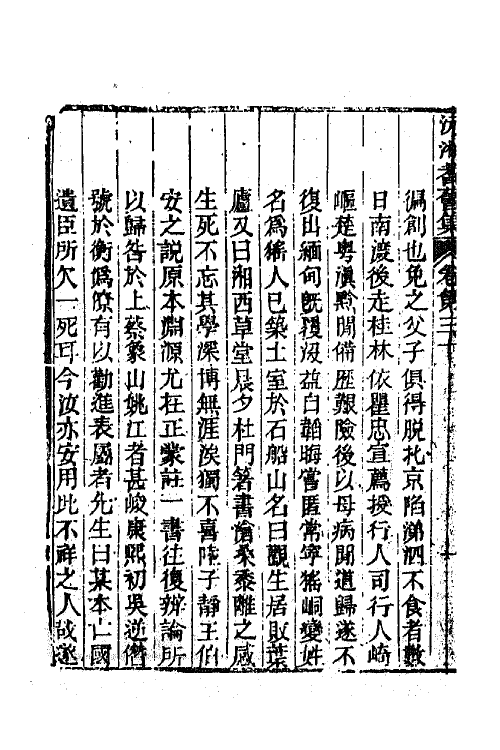 沅湘耆舊集卷第三十
徧創也免之父子俱得脫北京陷涕泗不食者數
日南渡後走桂林依瞿忠宣薦授行人司行人崎
嶇楚粵滇黔間備歷艱險後以母病聞道歸遂不
復出緬甸旣覆沒益自韜晦嘗匿常寧猺峒變姓
名爲猺人已築土室於石船山名曰觀生居敗葉
廬又曰湘西草堂晨夕杜門箸書愴桑黍離之感
生死不忘其學深博無涯涘獨不喜陸子靜王伯
安之說原本淵源尤在正蒙註一書往復辨論所
以歸咎於上蔡象山姚江者甚峻康熙初吳逆僭
號於衡僞僚有以勸進表屬者先生曰某本亡國
遺臣所欠一死耳今汝亦安用此不祥之人哉遂